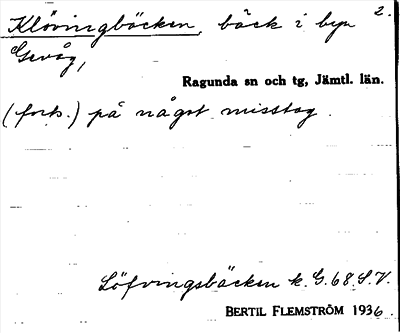 Klövingbäcken, bäck i byn 2.
Gevåg,
Ragunda sn och tg, Jämtl. län.
(forts.) på något misstag.
Löfvingsbäcken k. G. 68 S. V.
BERTIL FLEMSTRÖM 1936.